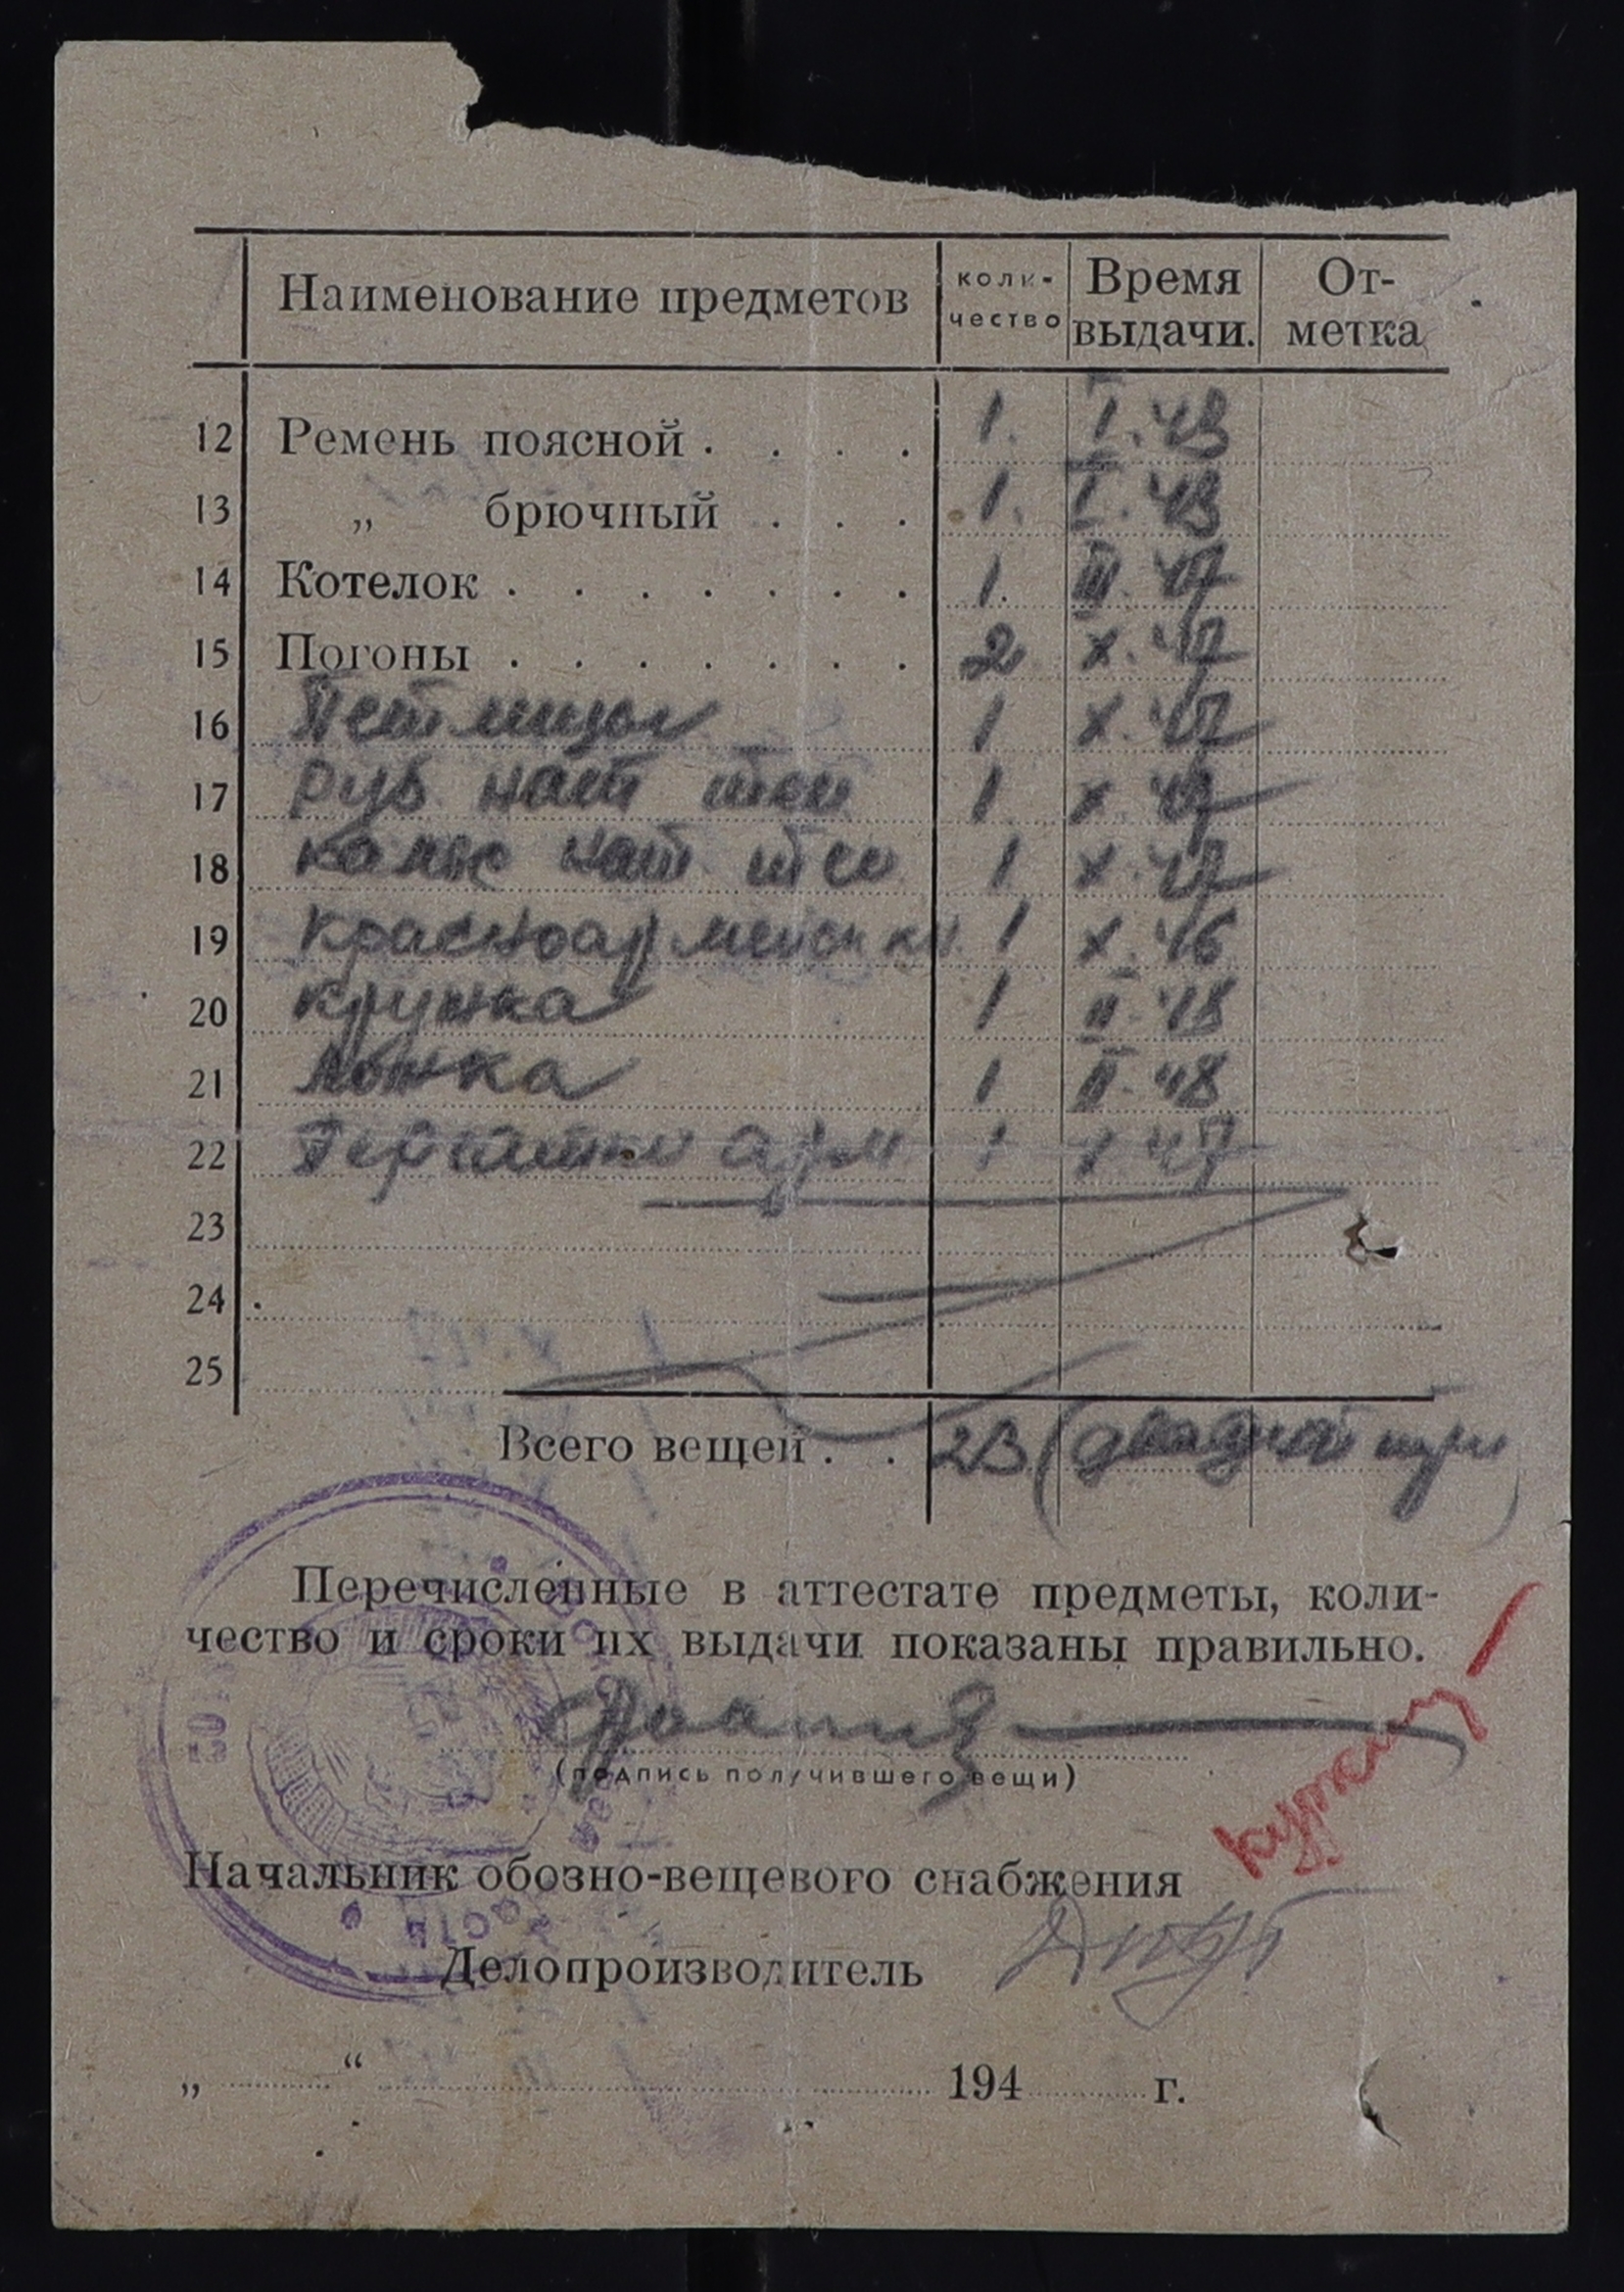 Наименование предметов коли-чество Время выдачи. От-метка
12 Ремень поясной . . . . 1. I. 43
13 „ брючный . . . 1. I. 43
14 Котелок . . . . . . . 1. III. 47
15 Погоны . . . . . . . 2 X. 47
16 Петлицы 1 X. 47
17 Руб нат теп 1 X. 47
18 кальс нат теп 1 X. 47
19 красноармейск кн. 1 X. 46
20 кружка 1 II. 48
21 Ложка 1 II. 48
22 Перчатки арм 1 X 47
23
24
25
Всего вещей . . 23 (двадцать три)
Перечисленные в аттестате предметы, коли-
чество и сроки их выдачи показаны правильно.
(подпись получившего вещи)
Начальник обозно-вещевого снабжения
Делопроизводитель
„ “ 194 г.